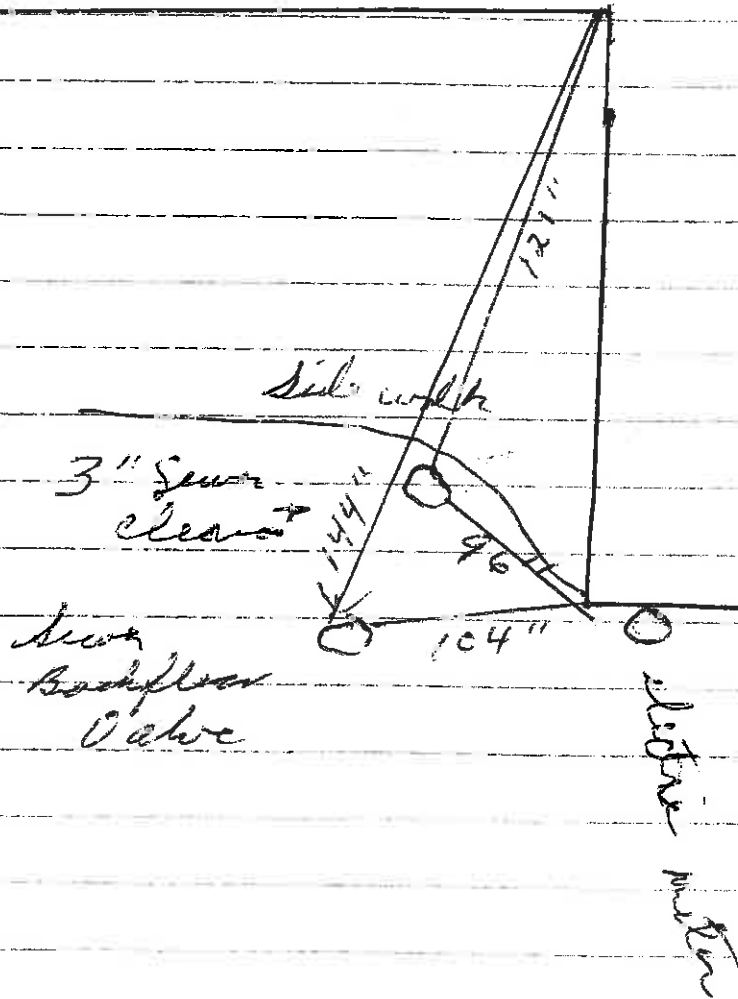 121"
Side walk
3" Sewer
cleanout
144"
96"
104"
Sewer
Backflow
Valve
electric meter